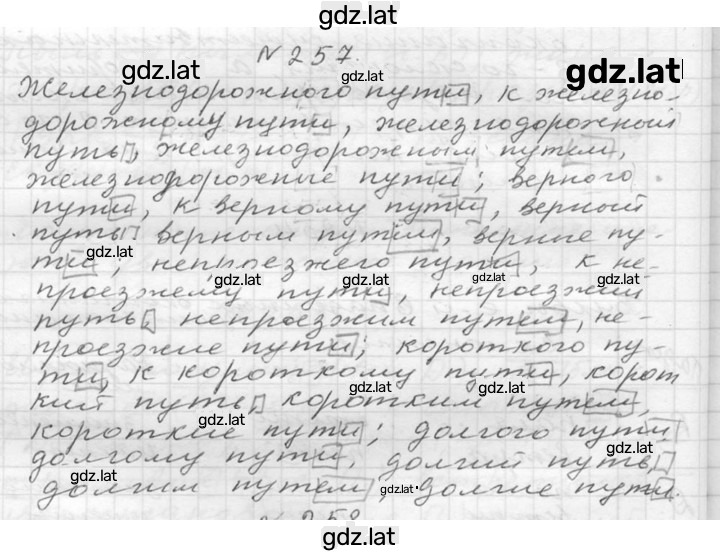 gdz.lat
№ 257.
gdz.lat
gdz.lat
gdz.lat
Железнодорожного пути, к железно-
дорожному пути, железнодорожный
путь, железнодорожным путем,
железнодорожные пути; верного
пути, к верному пути, верный
путь, верным путем, верные пу-
gdz.lat
ти; непроезжего пути, к не-
gdz.lat
gdz.lat
gdz.lat
проезжему пути, непроезжий
путь, непроезжим путем, не-
проезжие пути; короткого пу-
ти, к короткому пути, корот
gdz.lat
gdz.lat
кий путь, коротким путем,
gdz.lat
короткие пути; долгого пути
gdz.lat
долгому пути, долгий путь,
gdz.lat
долгим путем, долгие пути.
gdz.lat
№ 258
gdz.lat